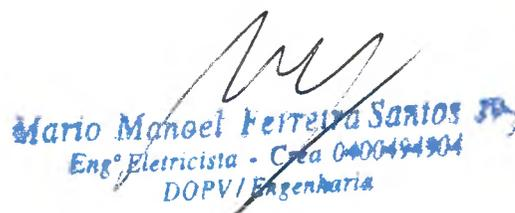 Mario Manoel Ferreira Santos
Engº Eletricista - Crea 0400494904
DOPV/Engenharia